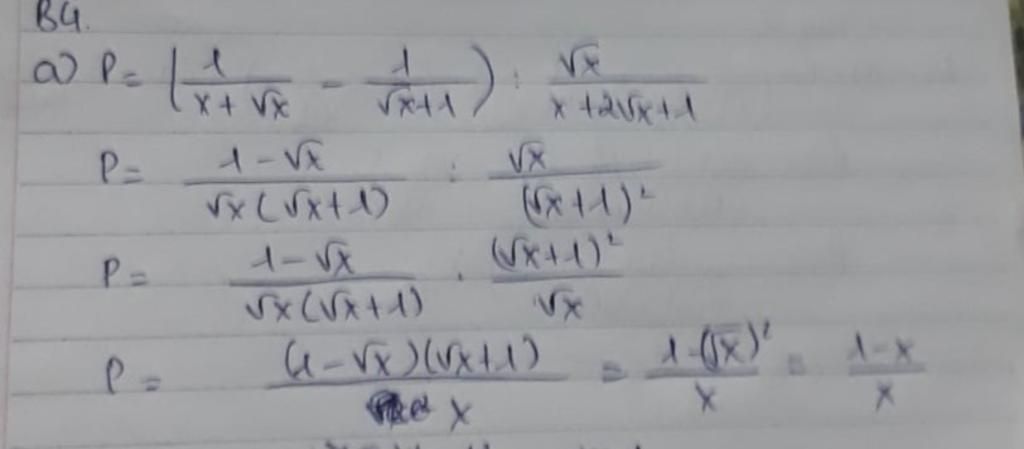 B4.
a) P = (1/(x + √x) - 1/(√x+1)) : √x/(x+2√x+1)
P = (1-√x)/(√x(√x+1)) : √x/(√x+1)²
P = (1-√x)/(√x(√x+1)) . (√x+1)²/√x
P = (1-√x)(√x+1)/x = (1-(√x)²)/x = (1-x)/x